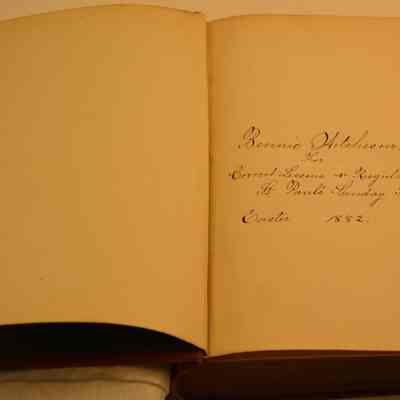 Bennie Aitcheson,
For
Correct Lessons & Regul
St. Paul's Sunday S
Easter 1882.